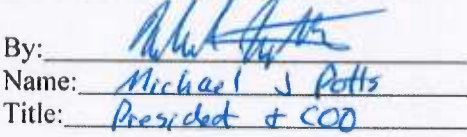 By:
Name: Michael J Potts
Title: President + COO